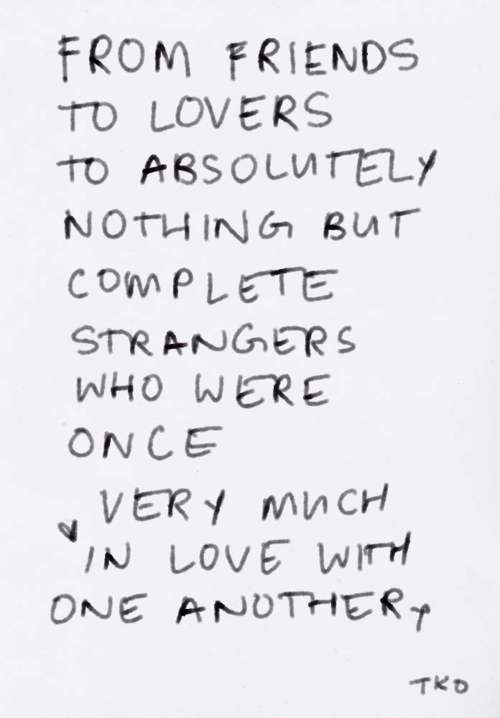 FROM FRIENDS
TO LOVERS
TO ABSOLUTELY
NOTHING BUT
COMPLETE
STRANGERS
WHO WERE
ONCE
VERY MUCH
IN LOVE WITH
ONE ANOTHER,
TKO